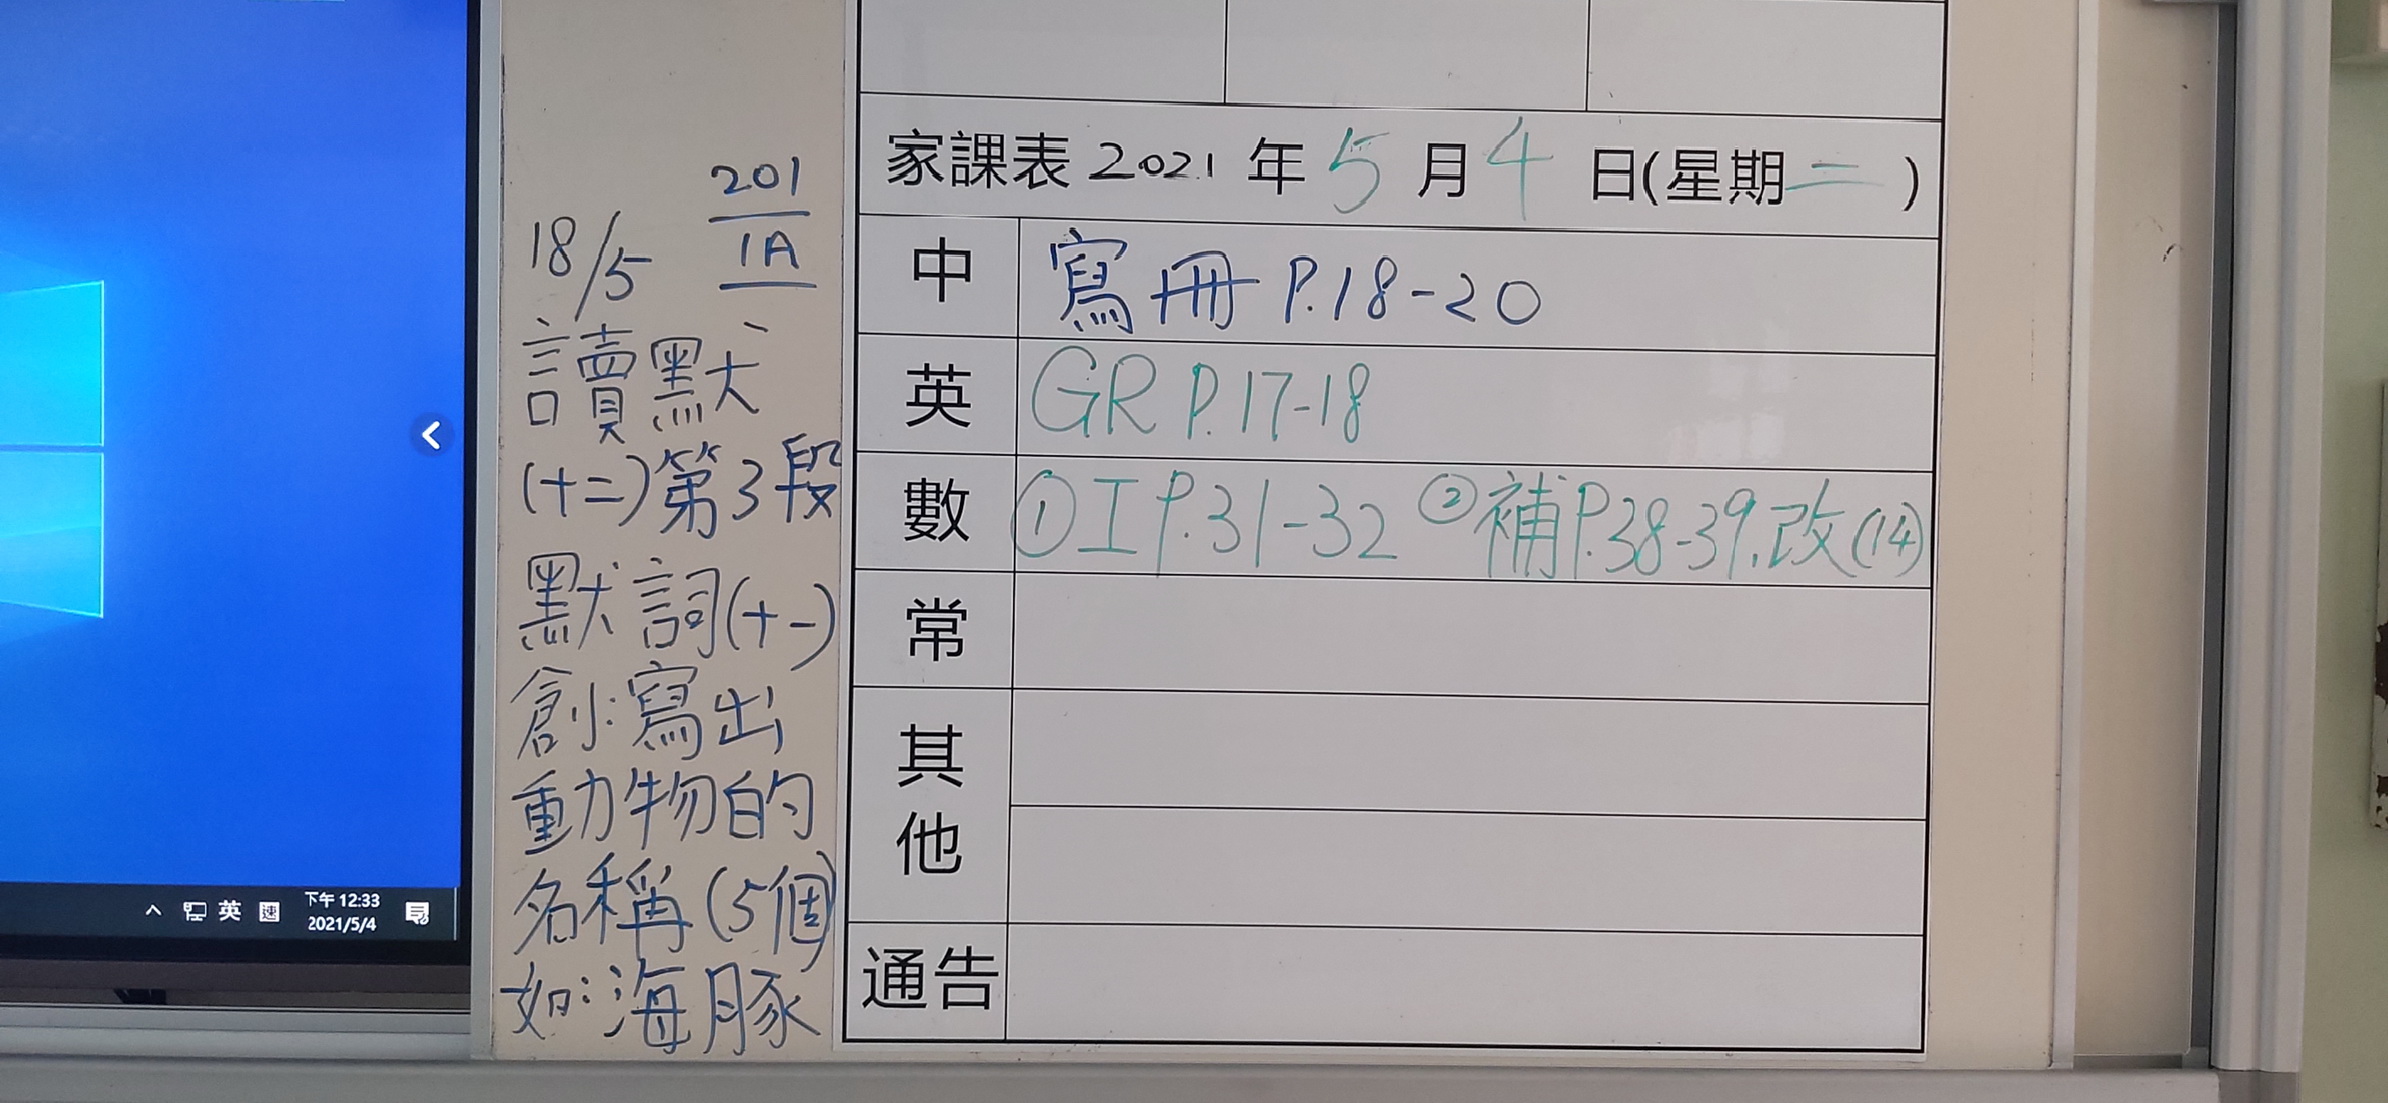 201
1A
18/5
讀默
(十二)第3段
默詞(十一)
創:寫出
動物的
名稱(5個)
如:海豚
家課表 2021 年 5 月 4 日(星期 二 )
中 寫冊 P.18-20
英 GR P.17-18
數 ①工 P.31-32 ②補 P.38-39.改(14)
常
其他
通告
英 速 下午 12:33
2021/5/4